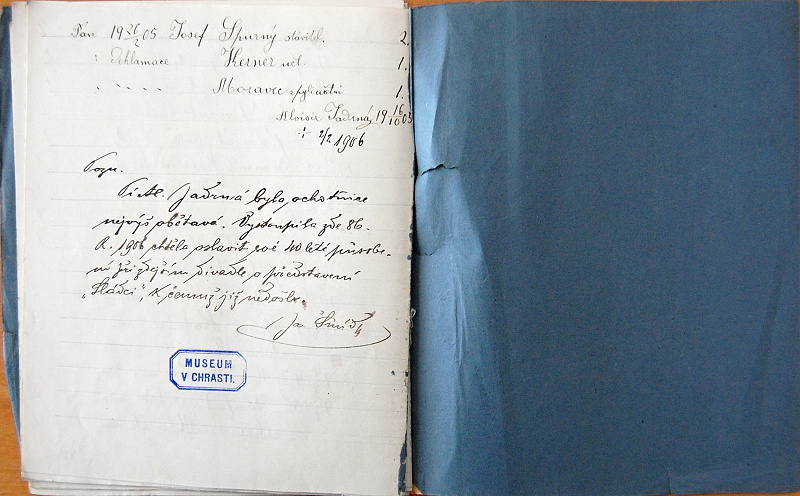 Pán 19 26/2 05 Josef Spurný stavitel. 2.
" Deklamace Kerner uct. 1.
" " " " Moravec 1.
Aloisie Jadrná 19 16/10 05
÷ 2/2 1906
Pozn.
Pí Al. Jadrná byla ochotnice
nejvýš obětavá. Vystoupila zde 86.
R. 1906 chtěla oslavit své 40 leté působe-
ní při zdejším divadle o představení
"Sládci", k čemuž již nedošlo.
Ja. Šmíd
MUSEUM
V CHRASTI.